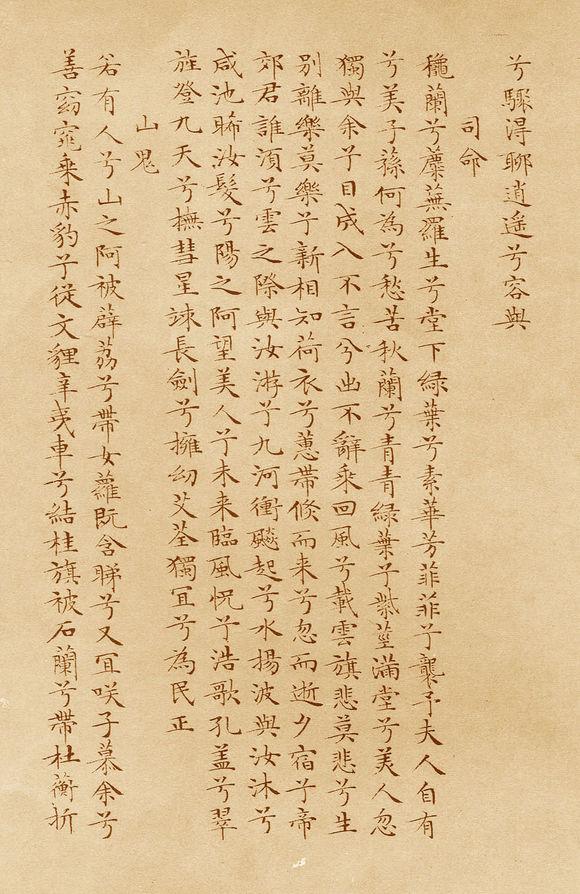 兮驟得聊逍遥兮容與
司命
穐蘭兮蘪蕪羅生兮堂下緑葉兮素華芳菲菲兮襲予夫人自有
兮美子蓀何為兮愁苦秋蘭兮青青緑葉兮紫莖滿堂兮美人忽
獨與余兮目成入不言兮出不辭乘回風兮載雲旗悲莫悲兮生
別離樂莫樂兮新相知荷衣兮蕙帶倐而来兮忽而逝夕宿兮帝
郊君誰湏兮雲之際與汝游兮九河衝飈起兮水揚波與汝沐兮
咸池晞汝髮兮陽之阿望美人兮未来臨風怳兮浩歌孔盖兮翠
旌登九天兮撫彗星竦長劍兮擁幼艾荃獨冝兮為民正
山鬼
若有人兮山之阿被薜荔兮帶女蘿既含睇兮又冝咲子慕余兮
善窈窕乘赤豹兮從文貍辛夷車兮結桂旗被石蘭兮帶杜蘅折